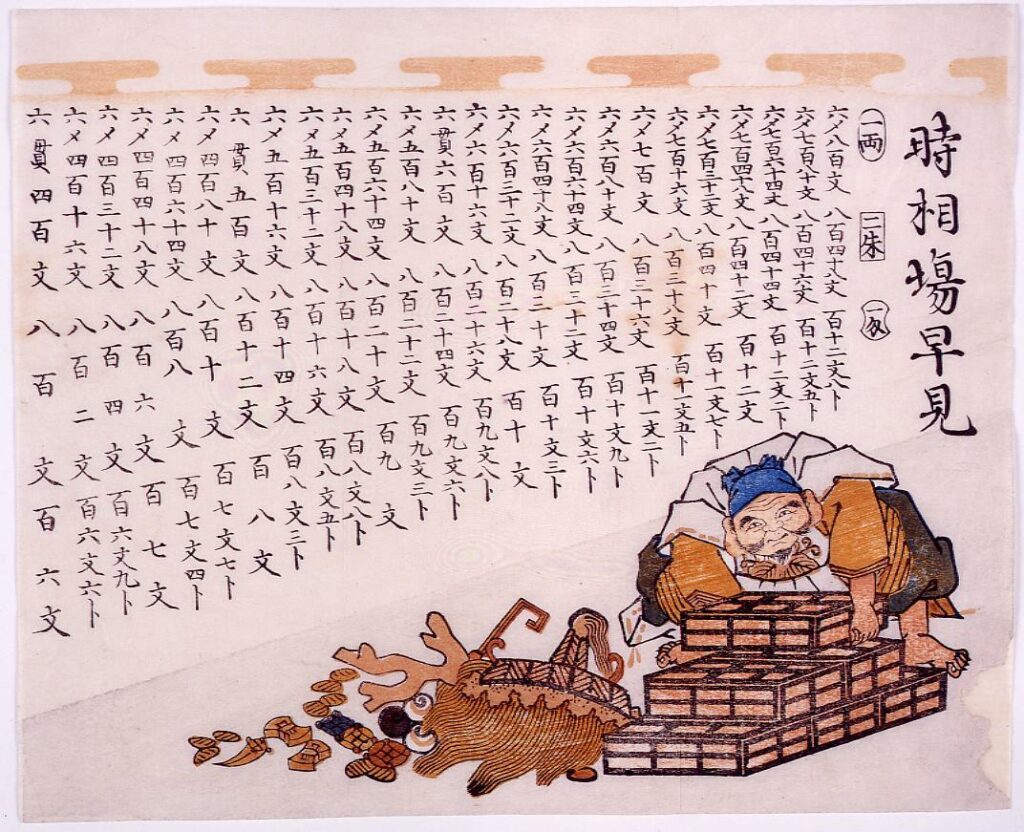 時相場早見
一両 二朱 一匁
六メ八百文 八百四十八文 百十二文八卜
六メ七百八十文 八百四十六文 百十二文五卜
六メ七百六十四文 八百四十四文 百十二文二卜
六メ七百四十八文 八百四十二文 百十二文
六メ七百三十二文 八百四十文 百十一文七卜
六メ七百十六文 八百三十八文 百十一文五卜
六メ七百文 八百三十六文 百十一文二卜
六メ六百八十文 八百三十四文 百十文九卜
六メ六百六十四文 八百三十二文 百十文六卜
六メ六百四十八文 八百三十文 百十文三卜
六メ六百三十二文 八百二十八文 百十文
六メ六百十六文 八百二十六文 百九文八卜
六貫六百文 八百二十四文 百九文六卜
六メ五百八十文 八百二十二文 百九文三卜
六メ五百六十四文 八百二十文 百九文
六メ五百四十八文 八百十八文 百八文八卜
六メ五百三十二文 八百十六文 百八文五卜
六メ五百十六文 八百十四文 百八文三卜
六貫五百文 八百十二文 百八文
六メ四百八十文 八百十文 百七文七卜
六メ四百六十四文 八百八文 百七文四卜
六メ四百四十八文 八百六文 百七文
六メ四百三十二文 八百四文 百六文九卜
六メ四百十六文 八百二文 百六文六卜
六貫四百文 八百文 百六文